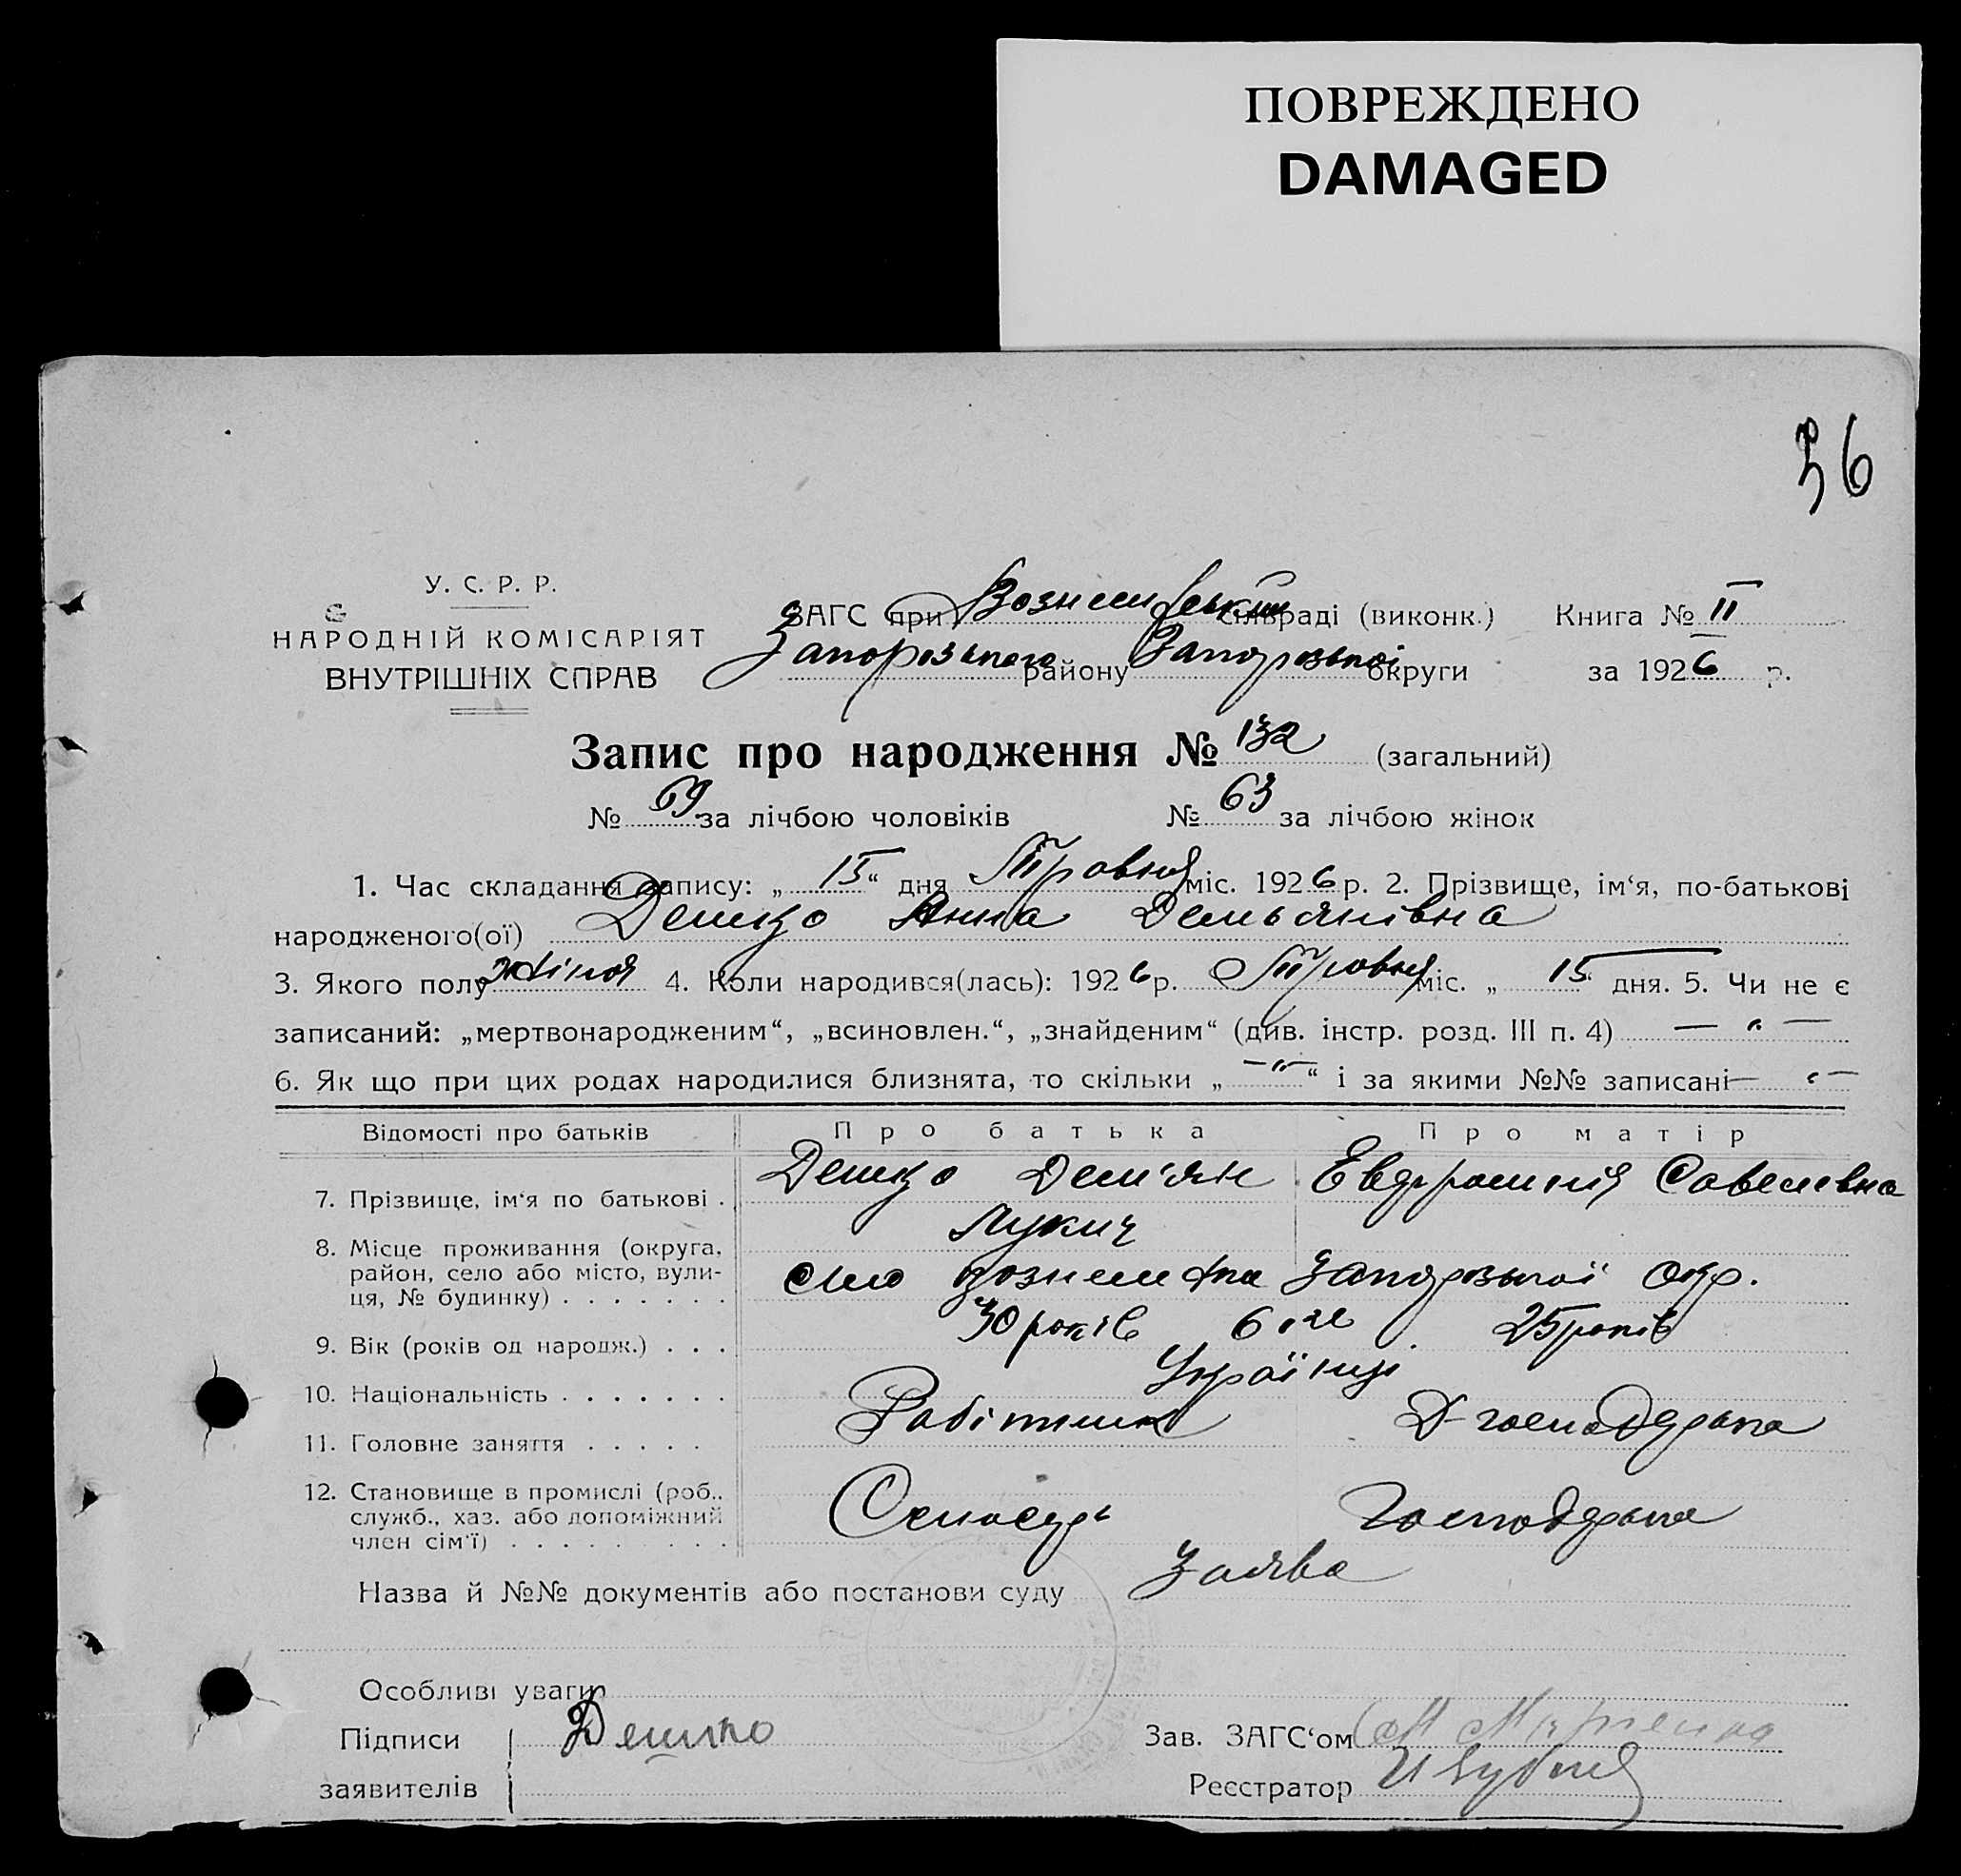 ПОВРЕЖДЕНО
DAMAGED
36
У. С. Р. Р.
НАРОДНІЙ КОМІСАРІЯТ
ВНУТРІШНІХ СПРАВ
ЗАГС при Вознесенській сільраді (виконк.) Книга № II
Запорізького району Запорізької округи за 1926 р.
Запис про народження № 132 (загальний)
№ 69 за лічбою чоловіків № 63 за лічбою жінок
1. Час складання запису: „15“ дня Травня міс. 1926 р. 2. Прізвище, ім‘я, по-батькові
народженого(ої) Дешко Анна Демьянівна
3. Якого полу жіноч 4. Коли народився(лась): 1926 р. Травня міс. „15“ дня. 5. Чи не є
записаний: „мертвонародженим“, „всиновлен.“, „знайденим“ (див. інстр. розд. III п. 4) — „ —
6. Як що при цих родах народилися близнята, то скільки „—„—“ і за якими №№ записані — „ —
Відомості про батьків Про батька Про матір
7. Прізвище, ім‘я по батькові . Дешко Дем‘ян Евдрошинія Савелевна
Лукич
8. Місце проживання (округа, район, село або місто, вулиця, № будинку) . . . . . . . село Вознесенка Запорізької Окр.
9. Вік (років од народж.) . . . 30 років 25 років
10. Національність . . . . . . . Українці
11. Головне заняття . . . . . Робітник Д-господарка
12. Становище в промислі (роб., служб., хаз. або допоміжний член сім‘ї) . . . . . . . . . Господарка
Назва й №№ документів або постанови суду Заява
Особливі уваги
Підписи Дешко Зав. ЗАГС‘ом
заявителів Реєстратор